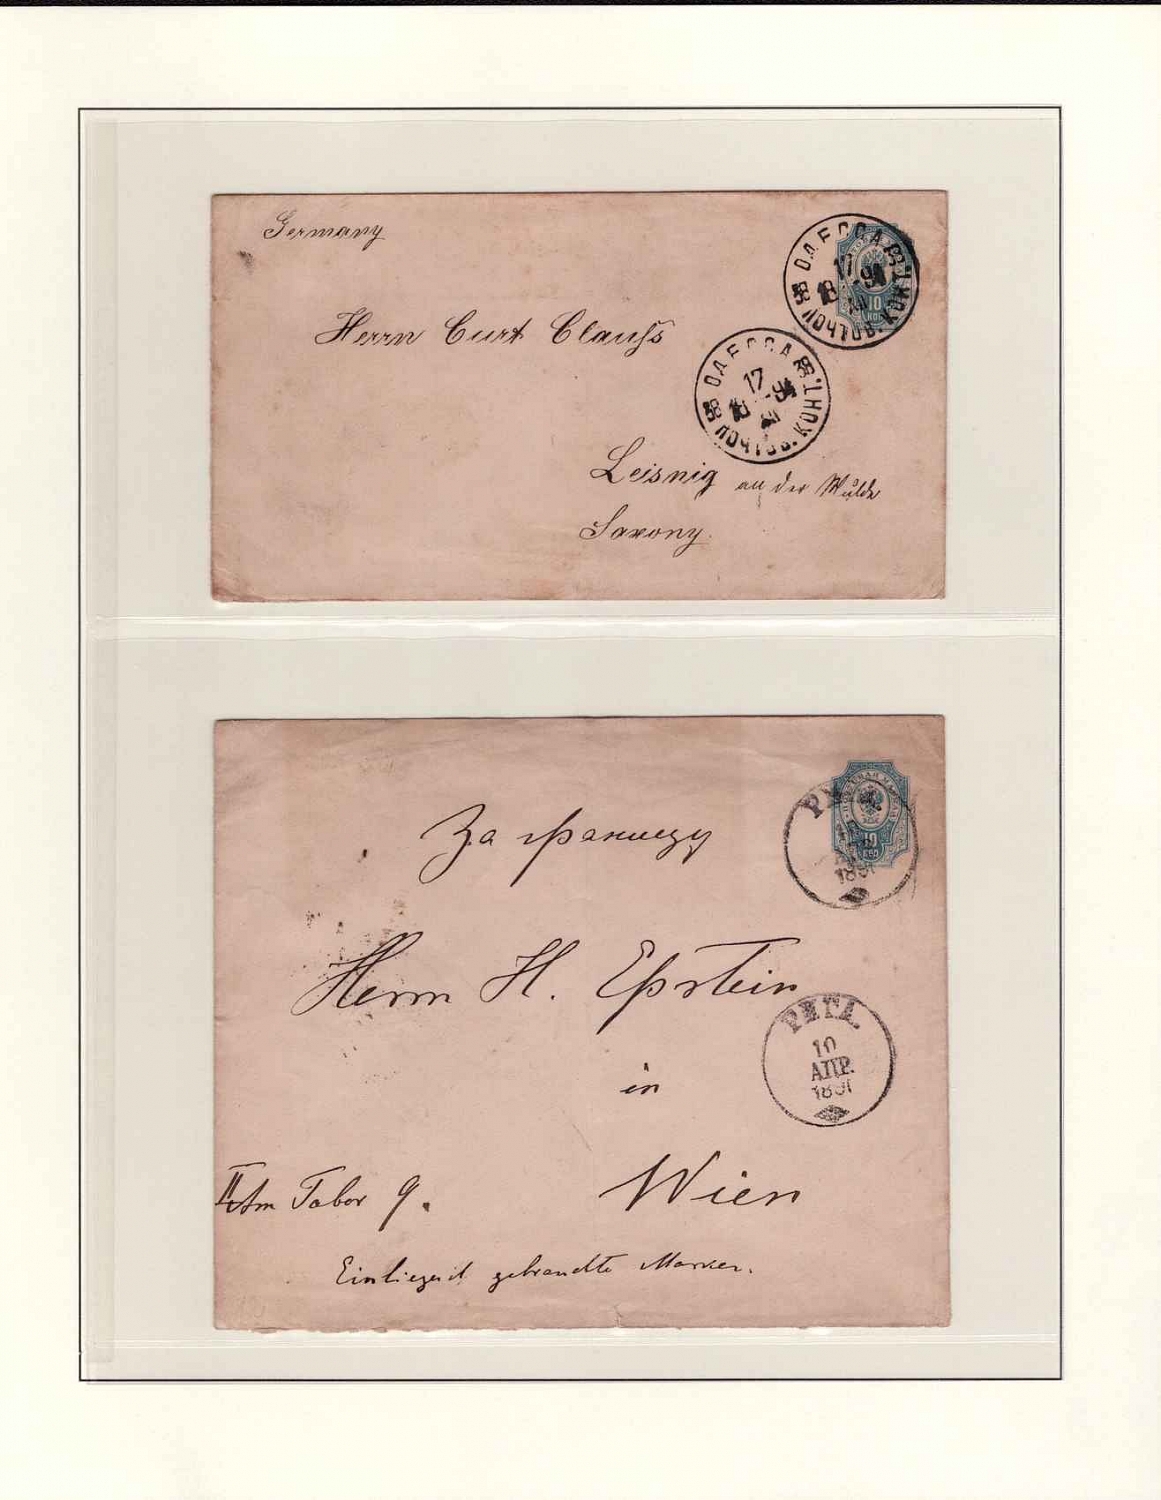 Germany
ОДЕССА
17
ПОЧТОВ. КОНТ.
10
КОП
Herrn Curt Clauß
ОДЕССА
17
ПОЧТОВ. КОНТ.
Leisnig an der Mulde
Saxony.
ПОЧТОВАЯ МАРКА
10
КОП
1891
За границу
Herrn H. Epstein
РИГА.
10
АПР.
1891
in
Wien
II Am Tabor 9.
Einliegend gebrauchte Marken.